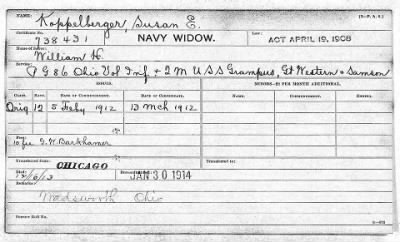 NAME: Koppelberger, Susan E. [3-P. A. G.]
Certificate No. 738431 NAVY WIDOW. ACT APRIL 19, 1908
Name of Sailor: William H.
Service: G 86 Ohio Vol Inf + 2 M U S S Grampus, Gt Western & Samson
MINORS—$2 PER MONTH ADDITIONAL.
CLASS. RATE. DATE OF COMMENCEMENT. DATE OF CERTIFICATE. RATE. DATE OF COMMENCEMENT.
Orig 12 5 Feby 1912 13 Mch 1912
Fee:
10 fee J. W. Barkhamer
Transferred from: CHICAGO Transferred to:
Died 12/16/13 JAN 30 1914
Wadsworth Ohio
Former Roll No.